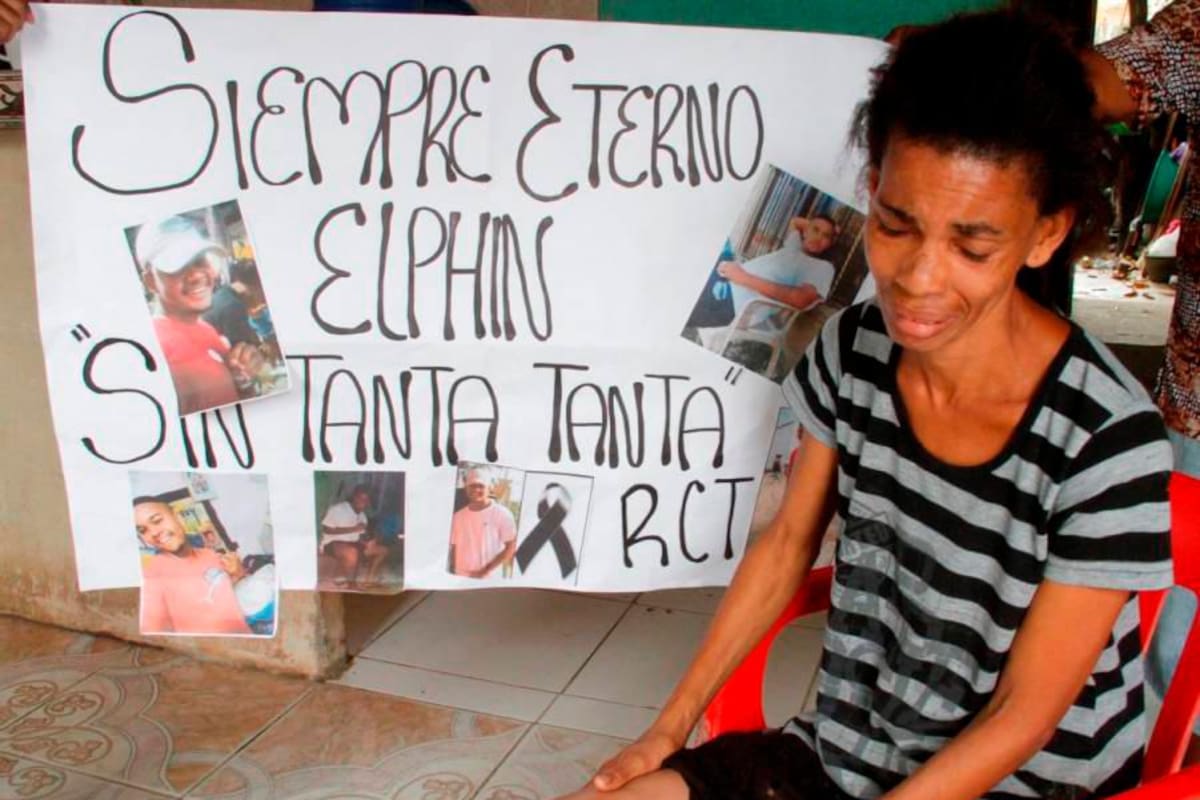 SIEMPRE ETERNO
ELPHIN
"SIN TANTA TANTA"
RCT